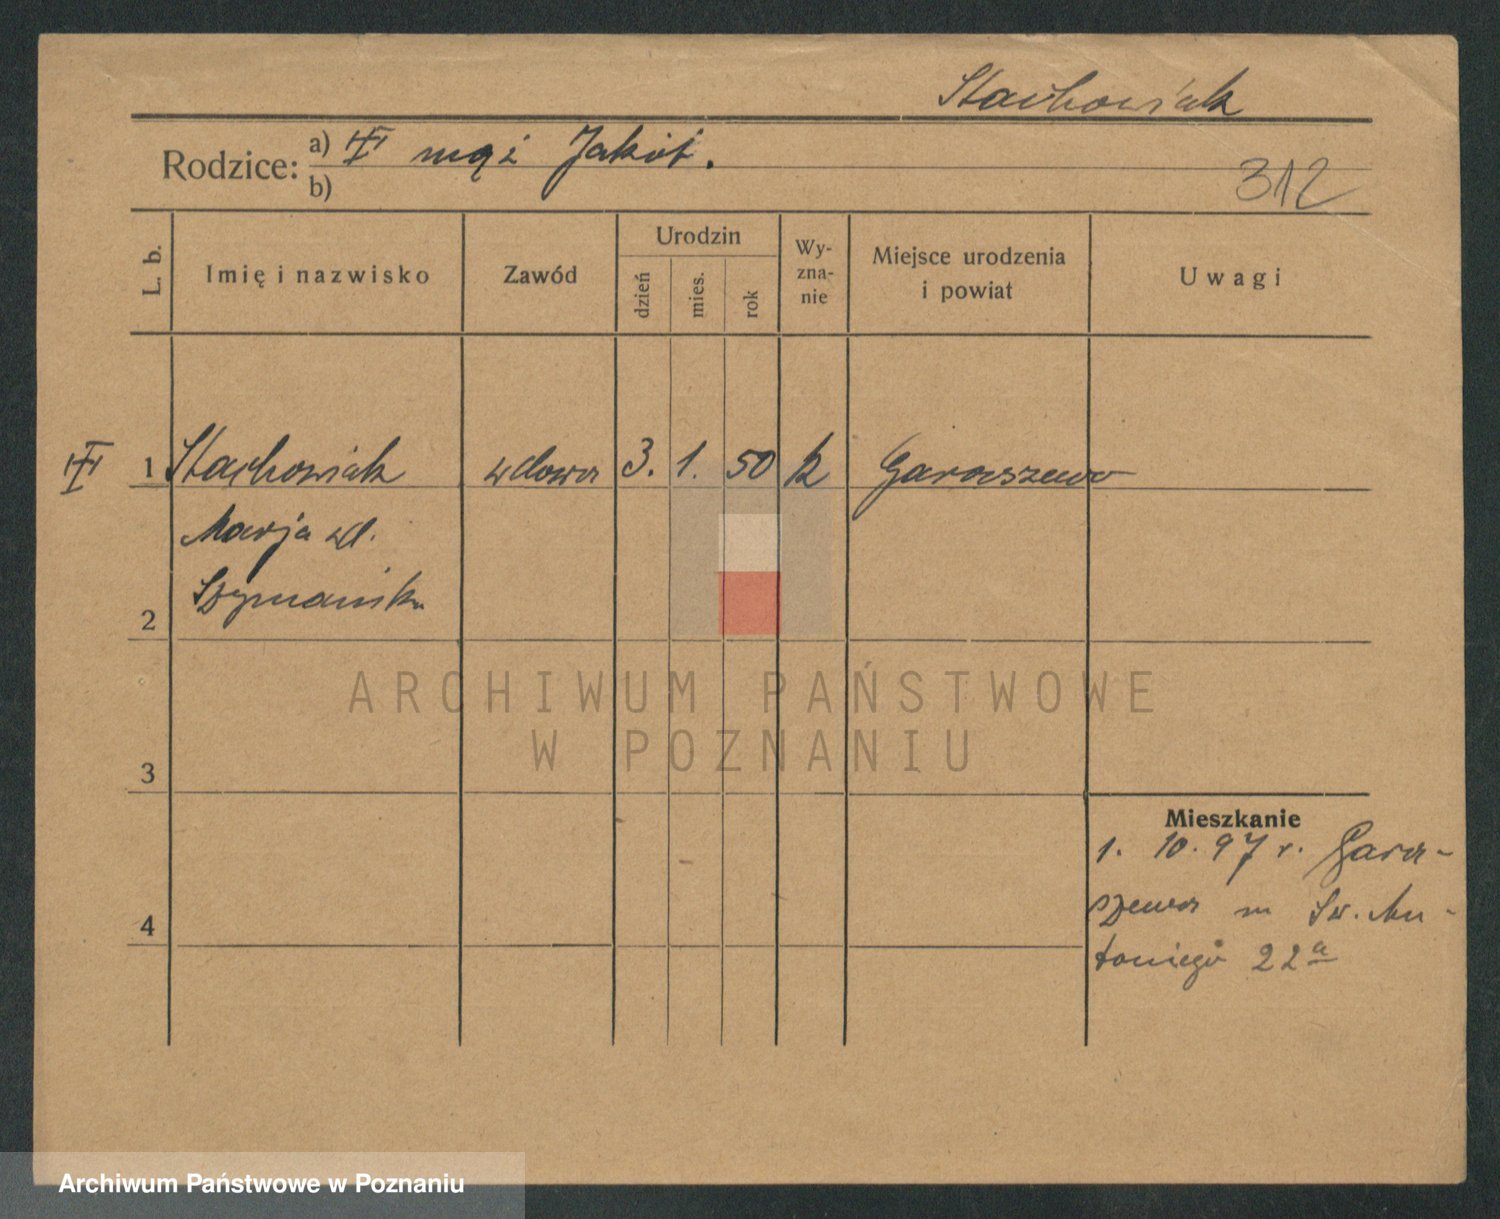 Stachowiak
Rodzice: a) mąż Jakób.
b)
312
L. b.
Imię i nazwisko
Zawód
Urodzin
dzień
mies.
rok
Wy-
zna-
nie
Miejsce urodzenia
i powiat
Uwagi
1 Stachowiak wdowa 3. 1. 50 k Garaszewo
Marja
2
3
4
Mieszkanie
1. 10. 97 r. Gara-
szewa m Św. An-
toniego 22a
ARCHIWUM PAŃSTWOWE
W POZNANIU
Archiwum Państwowe w Poznaniu